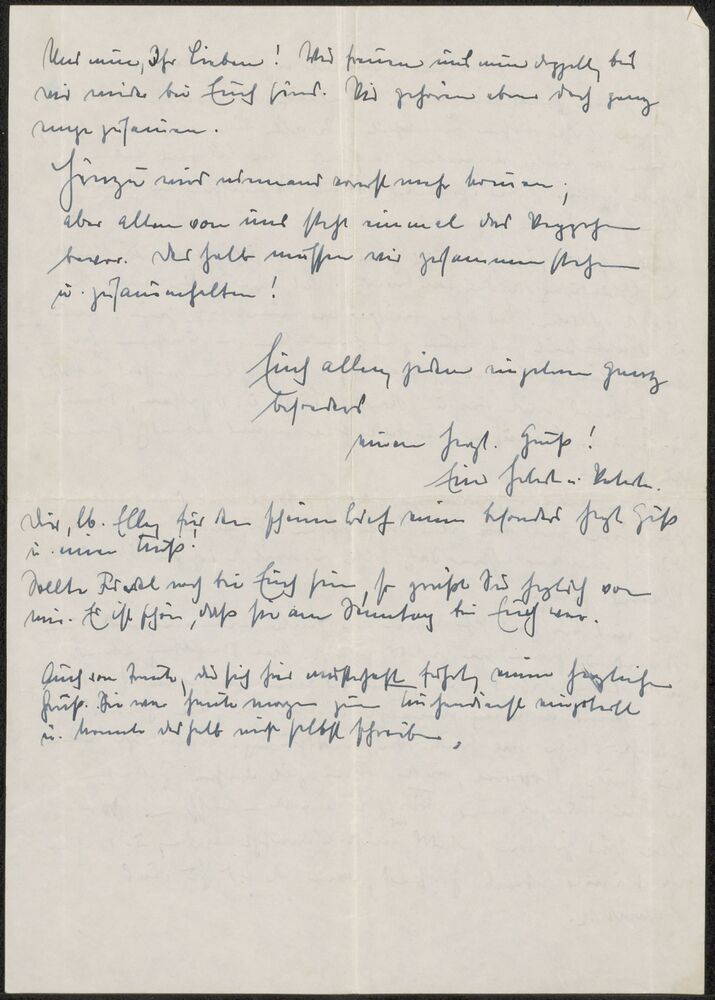 Und nun, Ihr Lieben! Wir freuen uns nun doppelt, bis
wir wieder bei Euch sind. Wir gehören eben doch ganz
enge zusammen.
Hinzu wird niemand vorerst mehr kommen;
aber allen von uns steht einmal das
bevor. Deshalb müssen wir zusammen stehen
u. zusammenhalten!
Euch allen, jedem einzelnen ganz
besonders
einen herzl. Gruß!
Eure
Dir, lb. Elly für den schönen Brief einen besonders herzl. Gruß
u. einen
Sollte noch bei Euch sein, so grüßt Sie herzlich von
mir. Es ist schön, daß sie am Sonntag bei Euch war.
Auch von die sich hier musterhaft führt, einen herzlichen
Gruß. Sie war heute morgen zum Küchendienst eingeteilt
u. konnte deshalb nicht selbst schreiben.